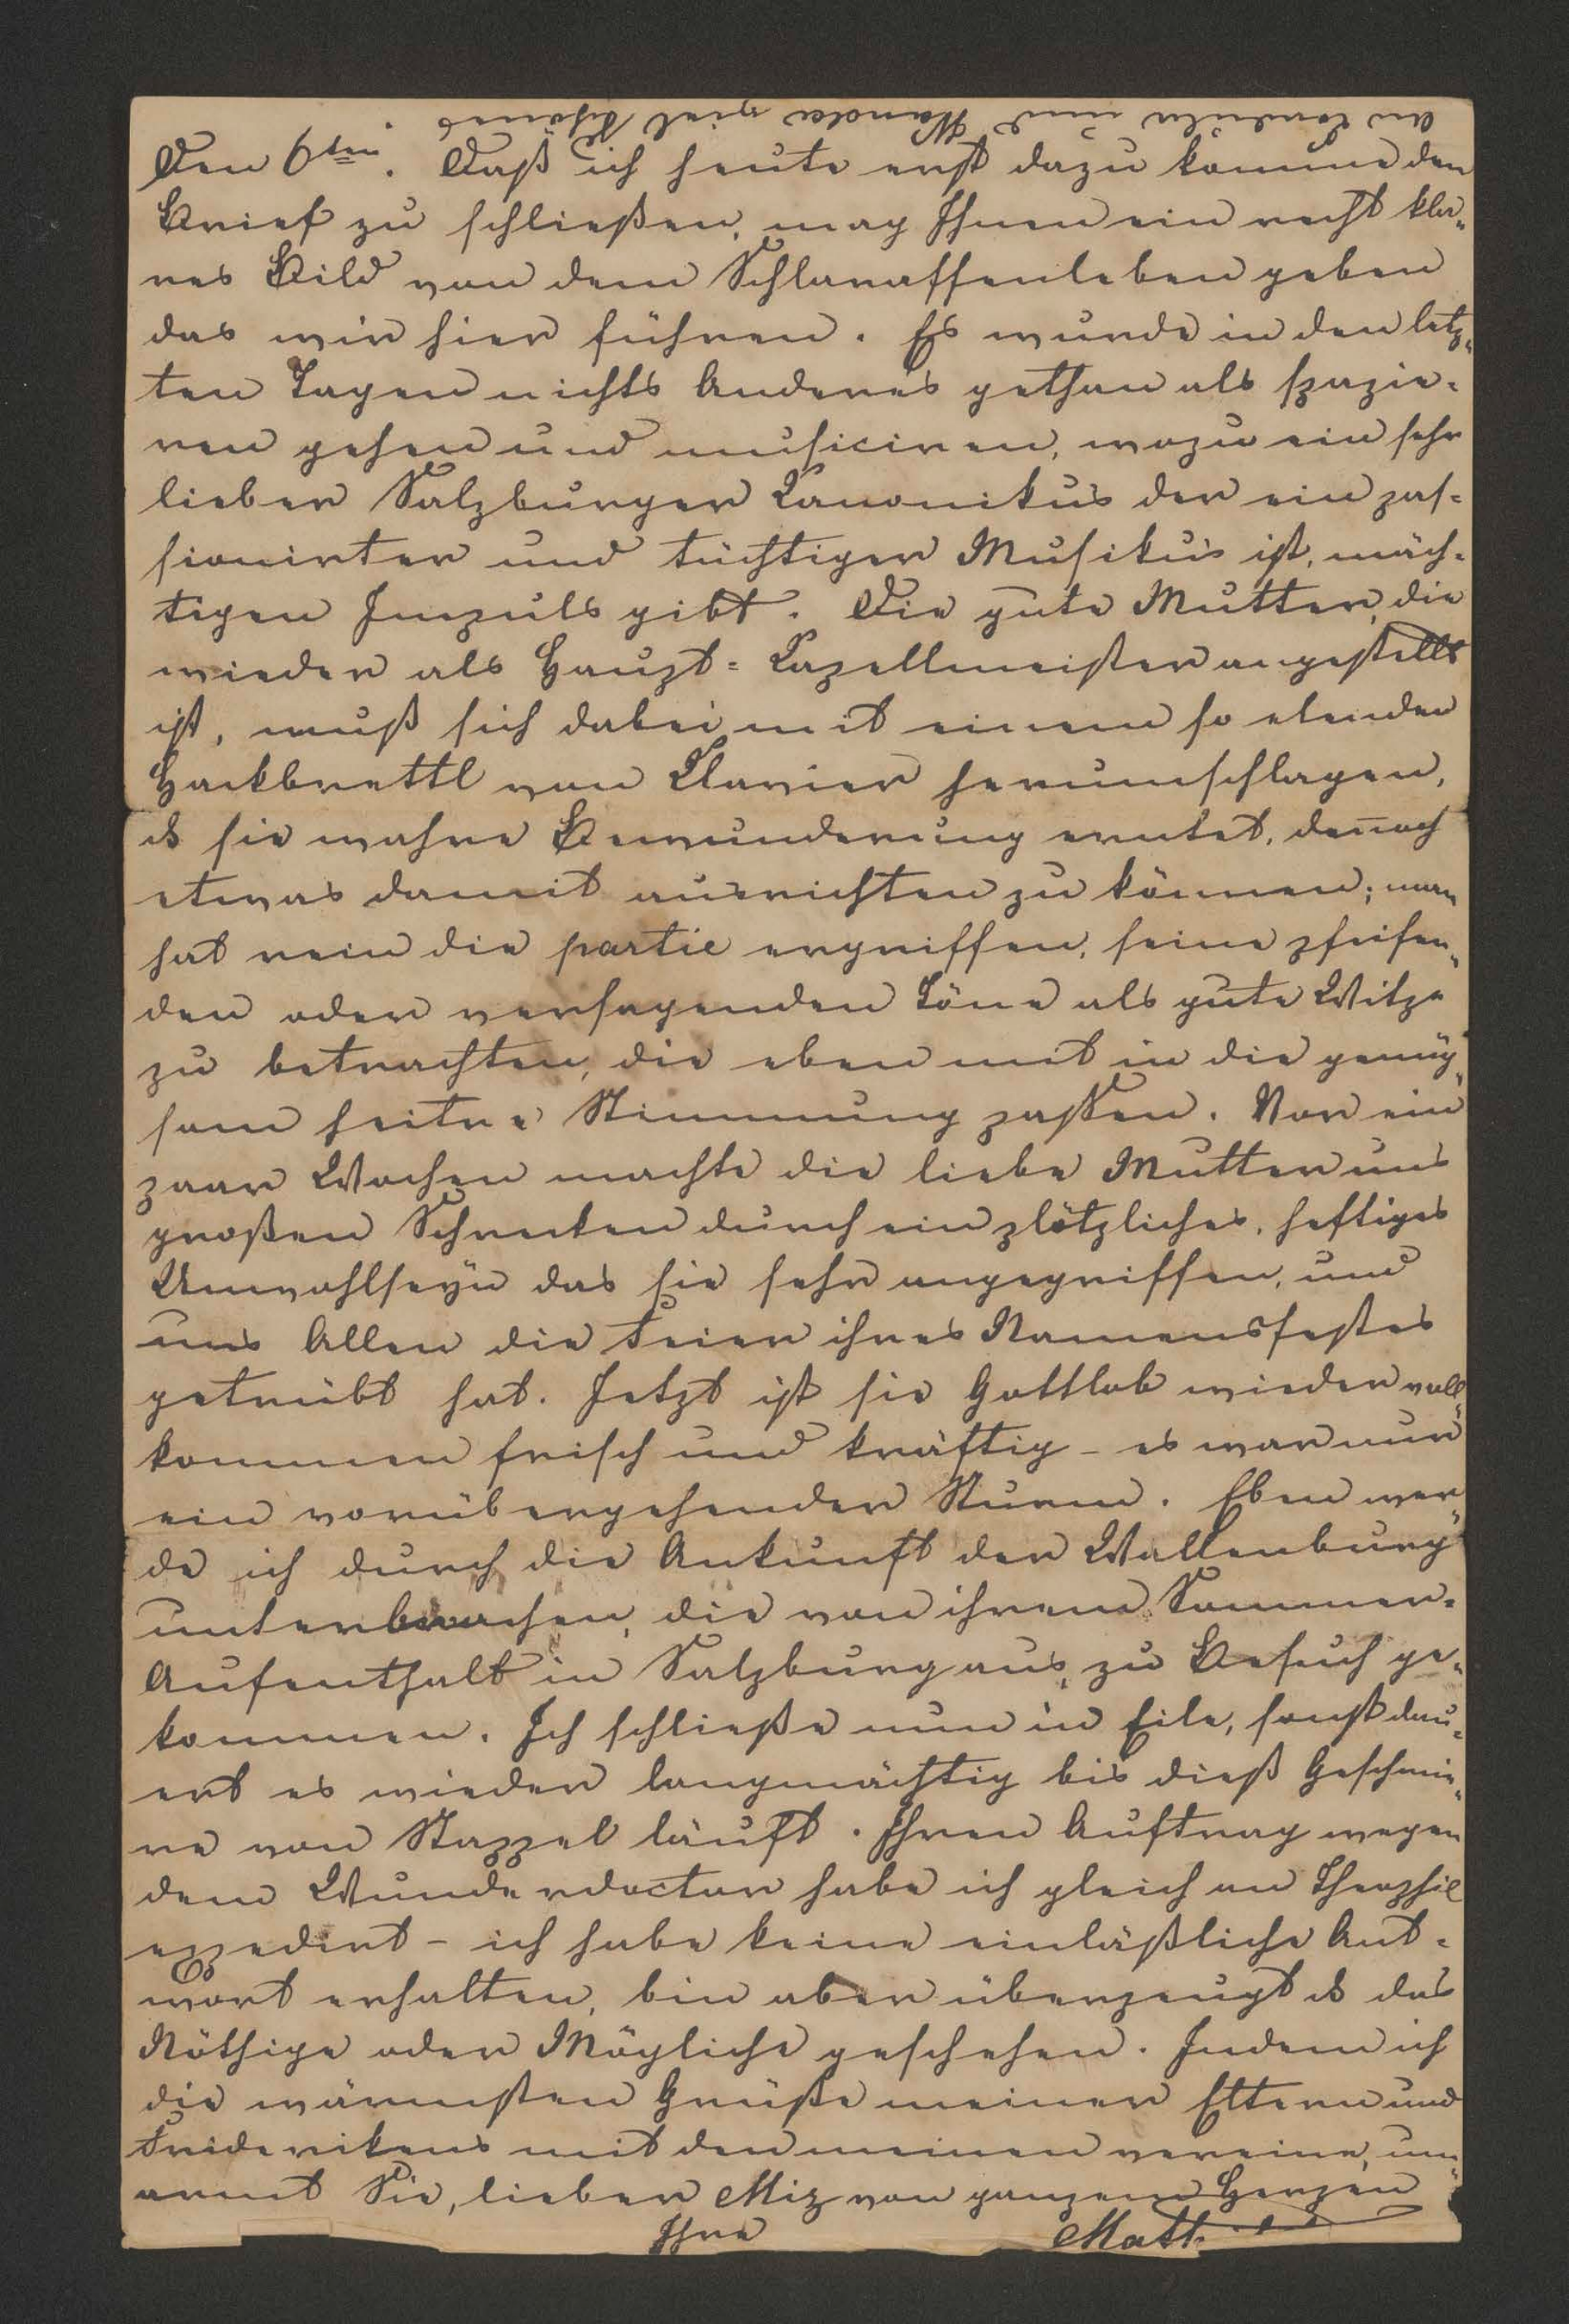 An Cordula und Wanda viel Schönes.
Den 6ten. Daß ich heute erst dazu komme den
Brief zu schließen, mag Ihnen ein recht kla„
res Bild von dem Schlaraffenleben geben
das wir hier führen. Es wurde in den letz„
ten Tagen nichts Anderes gethan als spazie=
ren gehen und musiciren, wozu ein sehr
lieber Salzburger Canonikus der ein pas=
sionirter und tüchtiger Musikus ist, mäch=
tigen Impuls gibt. Die gute Mutter, die
wieder als Haupt=Capellmeister angestellt
ist, muß sich dabei mit einem so elenden
Hackbrettl von Clavier herumschlagen,
ds sie wahre Bewunderung erntet, den̄och
etwas damit ausrichten zu können; man
hat rein die partie ergriffen, seine pfeifen„
den oder versagenden Töne als gute Witze
zu betrachten, die eben mit in die genüg„
sam heitre Stimmung paßen. Vor ein
paar Wochen machte die liebe Mutter uns
großen Schrecken durch ein plötzliches, heftiges
Unwohlseyn das sie sehr angegriffen, und
uns Allen die Feier ihres Namensfestes
getrübt hat. Jetzt ist sie Gottlob wieder voll„
kommen frisch und kräftig – es war nur
ein vorübergehender Sturm. Eben wer„
de ich durch die Ankunft der Wallenburg
unterbrochen, die von ihrem Sommer=
Aufenthalt in Salzburg aus, zu Besuch ge„
kommen. Ich schließe nun in Eile, sonst dau„
ert es wieder langmächtig bis dieß Geschmie„
re von Stappel läuft. Ihren Auftrag wegen
dem Wunderdoctor habe ich gleich an Theophil
expedirt – ich habe keine einläßliche Ant=
wort erhalten, bin aber überzeugt ds das
Nöthige oder Mögliche geschehen. Indem ich
die wärmsten Grüße meiner Eltern und
Friderikens mit den meinen vereine, um„
armt Sie, lieber Miz von ganzem Herzen
Ihre Math